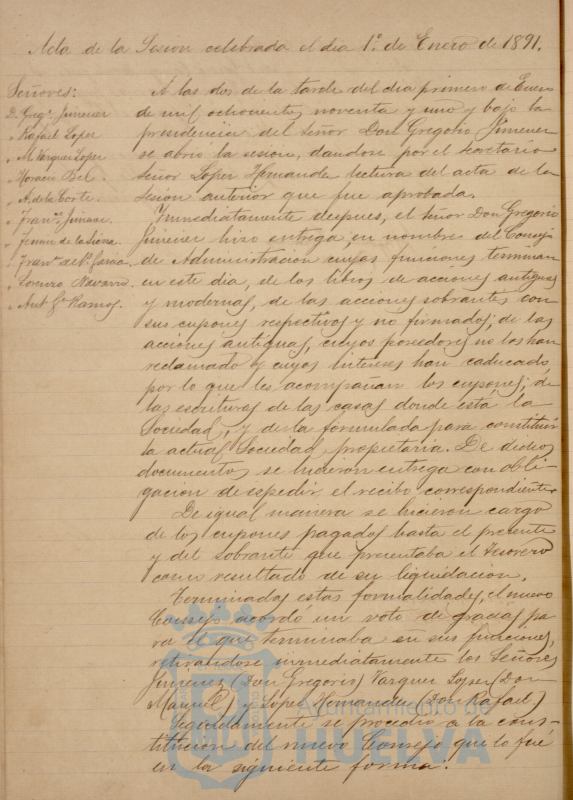 Acta de la Sesion celebrada el dia 1º de Enero de 1891.
Señores:
D. Gregº Jimenez
" Rafael Lopez
" M. Vazquez Lopez
" Horacio Bel.
" A. de la Corte.
" Franco Jimenez.
" Fernan de la
" Franco de P. Garcia.
" Lorenzo Navarro.
" Ant. Gª Ramos.
A las dos de la tarde del dia primero de Enero
de mil ochocientos noventa y uno y bajo la
presidencia del Señor Don Gregorio Jimenez
se abrió la sesion, dandose por el secretario
Señor Lopez Hernandez lectura del acta de la
sesion anterior que fue aprobada.
Inmediatamente despues, el Señor Don Gregorio
Jimenez hizo entrega, en nombre del Consejo
de Administracion cuyas funciones terminan
en este dia, de los libros de acciones antiguas
y modernas, de las acciones sobrantes con
sus cupones respectivos y no firmados; de las
acciones antiguas, cuyos poseedores no los han
reclamado y cuyos intereses han caducado,
por lo que les acompañan los cupones; de
las escrituras de las casas donde está la
Sociedad, y de la formulada para constituir
la actual Sociedad propietaria. De dichos
documentos se hicieron entrega con obli-
gacion de espedir el recibo correspondiente.
De igual manera se hicieron cargo
de los cupones pagados hasta el presente
y del sobrante que presentaba el Tesorero
como resultado de su liquidacion.
Terminadas estas formalidades, el nuevo
Consejo acordó un voto de gracias pa-
ra el que terminaba en sus funciones,
retirandose inmediatamente los Señores
Jimenez (Don Gregorio) Vazquez Lopez (Don
Manuel) y Lopez Hernandez (Don Rafael)
Seguidamente se procedio a la cons-
titucion del nuevo Consejo que lo fué
en la siguiente forma:
Ayuntamiento de
HUELVA